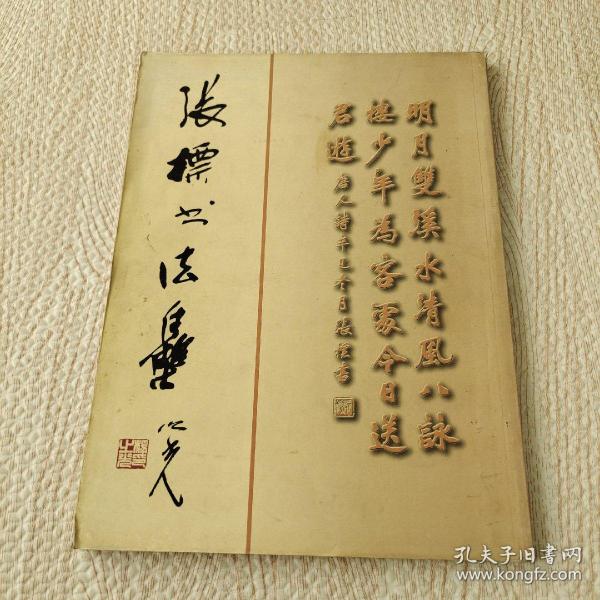 明月雙溪水清風八詠
樓少年為客處今日送
君遊 唐人詩辛巳年月張標書
張標書法集
孔夫子旧书网
www.kongfz.com